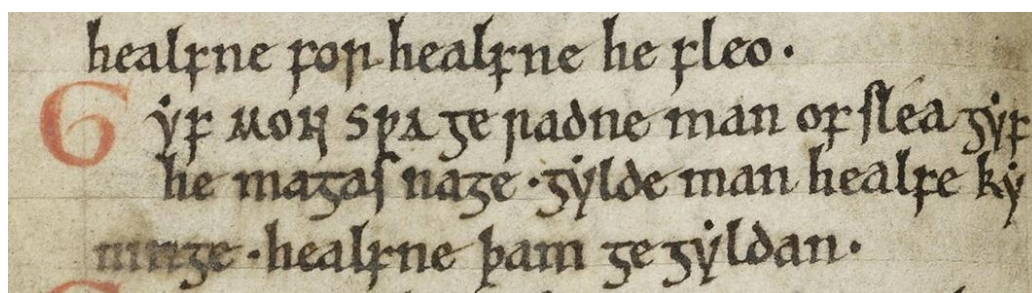 healfne for healfne he fleo.
Gẏf mon spa ge radne man of slea gẏf
he magas nage · gẏlde man healfe kẏ
ninge · healfne þam ge gẏldan ·